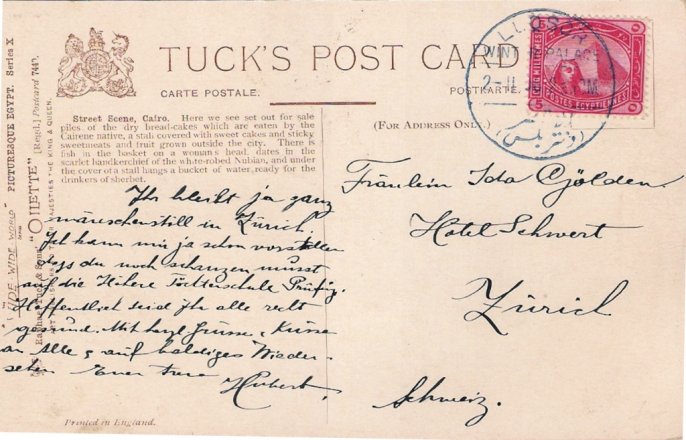 TUCK'S POST CARD
CARTE POSTALE.
POSTKARTE.
(FOR ADDRESS ONLY.)
Street Scene, Cairo. Here we see set out for sale
piles of the dry bread-cakes which are eaten by the
Cairene native, a stall covered with sweet cakes and sticky
sweetmeats and fruit grown outside the city. There is
fish in the basket on a woman's head, dates in the
scarlet handkerchief of the white-robed Nubian, and under
the cover of a stall hangs a bucket of water, ready for the
drinkers of sherbet.
Ihr bleibt ja ganz
mäuschenstill in Zürich.
Ich kann mir ja schon vorstellen
dass du noch schanzen musst
auf die Höhere Töchterschule Prüfung.
Hoffentlich seid Ihr alle recht
gesund. Mit herzl Grüsse & Küsse
an Alle & auf baldiges Wieder-
sehen Euer treuer
Hubert.
Fräulein Ida Gölden
Hotel Schwert
Zürich
Schweiz.
LUQSOR
WINTER PALACE
2-II
PM
FIVE MILLIEMES
POSTES EGYPTIENNES
5
5
"WIDE WIDE WORLD" PICTURESQUE EGYPT. Series X
"OILETTE" [Regd.] Postcard 7443.
Raphael Tuck & Sons
MAJESTIES THE KING & QUEEN.
Printed in England.